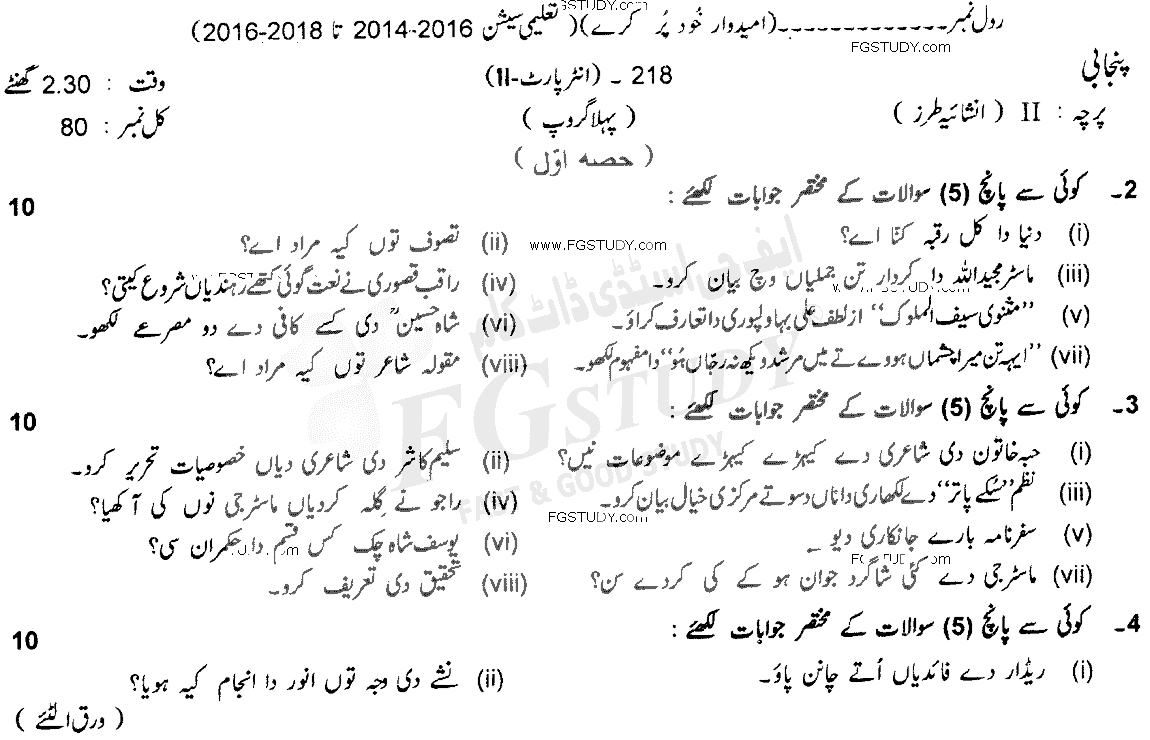 رول نمبر ـــــــــــــــ (امیدوار خُود پُر کرے)( تعلیمی سیشن 2016-2014 تا 2018-2016)
FGSTUDY.com
پنجابی 218 ۔ (انٹر پارٹ-II) وقت : 2.30 گھنٹے
پرچہ : II ( انشائیہ طرز ) ( پہلا گروپ ) کل نمبر : 80
( حصہ اوّل )
2۔ کوئی سے پانچ (5) سوالات کے مختصر جوابات لکھئے : 10
(i) دنیا دا کل رقبہ کنّا اے؟ www.FGSTUDY.com (ii) تصوف توں کیہ مراد اے؟
(iii) ماسٹر مجید اللہ دا کردار تن جملیاں وچ بیان کرو۔ (iv) راقب قصوری نے نعت گوئی کتھے رہندیاں شروع کیتی؟
(v) ”مثنوی سیف الملوک“ از لطف علی بہاولپوری دا تعارف کراؤ۔ (vi) شاہ حسینؒ دی کسے کافی دے دو مصرعے لکھو۔
(vii) ”ایہہ تن میرا چشماں ہووے تے میں مرشد ویکھ نہ رجّاں ہُو“ دا مفہوم لکھو۔ (viii) مقولہ شاعر توں کیہ مراد اے؟
3۔ کوئی سے پانچ (5) سوالات کے مختصر جوابات لکھئے : 10
(i) حبہ خاتون دی شاعری دے کیہڑے کیہڑے موضوعات نیں؟ (ii) سلیم کاشر دی شاعری دیاں خصوصیات تحریر کرو۔
(iii) نظم ”سُکے پاتر“ دے لکھاری دا ناں دسو تے مرکزی خیال بیان کرو۔ (iv) راجو نے گِلہ کردیاں ماسٹر جی نوں کی آکھیا؟
FGSTUDY.com
(v) سفرنامہ بارے جانکاری دیو ۔ (vi) یوسف شاہ چک کس قسم دا حکمران سی؟
(vii) ماسٹر جی دے کئی شاگرد جوان ہو کے کی کردے سن؟ (viii) تحقیق دی تعریف کرو۔
4۔ کوئی سے پانچ (5) سوالات کے مختصر جوابات لکھئے : 10
(i) ریڈار دے فائدیاں اُتے چانن پاؤ۔ (ii) نشے دی وجہ توں انور دا انجام کیہ ہویا؟
( ورق الٹئے )
ایف جی اسٹڈی ڈاٹ کام
FGSTUDY
FAST & GOOD STUDY